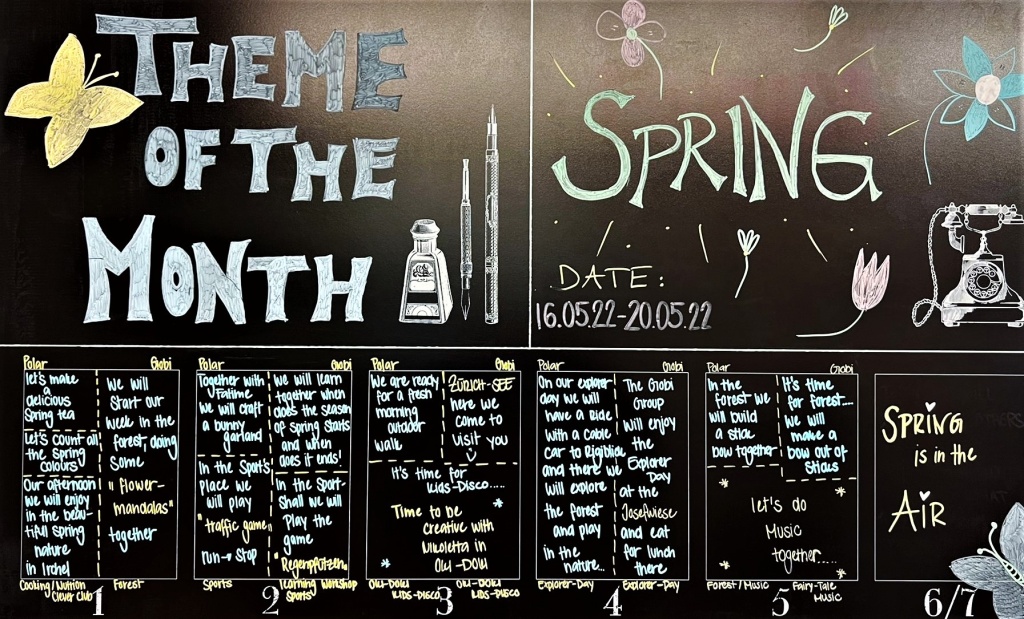 THEME
OF THE
MONTH
SPRING
DATE:
16.05.22-20.05.22
Polar
let's make
a
delicious
Spring tea
Let's count all
the spring
colours
Our afternoon
we will enjoy
in the beau-
tiful spring
nature
in Irchel
Cooking/Nutrition
Clever Club
Globi
We will
Start our
week in the
forest, doing
some
"flower-
mandalas"
together
Forest
1
Polar
Together with
Fatime
we will craft
a bunny
garland
In the Sports
Place we
will play
"traffic game"
run → stop
Sports
Globi
we will learn
together when
does the season
of spring starts
and when
does it ends!
In the Sport-
Shall we will
Play the
game
"Regenpfützen"
learning Workshop
Sports
2
Polar
We are ready
for a fresh
morning
outdoor
walk
Globi
ZÜRICH-SEE
here we
come to
visit you
It's time for
Kids-Disco.....
Time to be
creative with
Nikoletta in
OKI-DOKI
OKI-DOKI
KIDS-DISCO
OKI-DOKI
KIDS-DISCO
3
Polar
On our explorer
day we will
have a ride
with a cable
car to Rigiblick
and there we
will explore
the forest
and play
in the
nature...
Explorer-Day
Globi
The Globi
Group
will enjoy
the
Explorer
Day
at the
Josefwiese
and eat
for lunch
there
Explorer-Day
4
Polar
In the
forest we
will build
a stick
bow together
Globi
It's time
for forest....
We will
make a
bow out of
sticks
let's do
Music
together.....
Forest/Music
Fairy-Tale
Music
5
SPRING
is in the
AIR
6/7